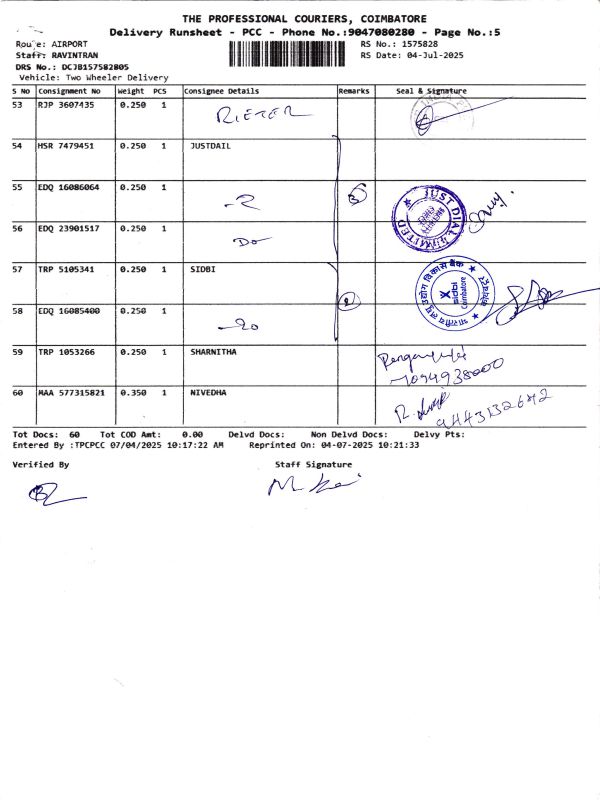 THE PROFESSIONAL COURIERS, COIMBATORE
Delivery Runsheet - PCC - Phone No.:9047080280 - Page No.:5
Route: AIRPORT
RS No.: 1575828
Staff: RAVINTRAN
RS Date: 04-Jul-2025
DRS No.: DCJB157582805
Vehicle: Two Wheeler Delivery
S No Consignment No Weight PCS Consignee Details Remarks Seal & Signature
53 RJP 3607435 0.250 1 RIETER
54 HSR 7479451 0.250 1 JUSTDAIL
55 EDQ 16086064 0.250 1
3
JUST DIAL LIMITED
56 EDQ 23901517 0.250 1 Do
57 TRP 5105341 0.250 1 SIDBI
भारतीय लघु उद्योग विकास बैंक
sidbi
Coimbatore
58 EDQ 16085400 0.250 1
2
59 TRP 1053266 0.250 1 SHARNITHA
7094938000
60 MAA 577315821 0.350 1 NIVEDHA
9443132642
Tot Docs: 60 Tot COD Amt: 0.00 Delvd Docs: Non Delvd Docs: Delvy Pts:
Entered By :TPCPCC 07/04/2025 10:17:22 AM Reprinted On: 04-07-2025 10:21:33
Verified By Staff Signature